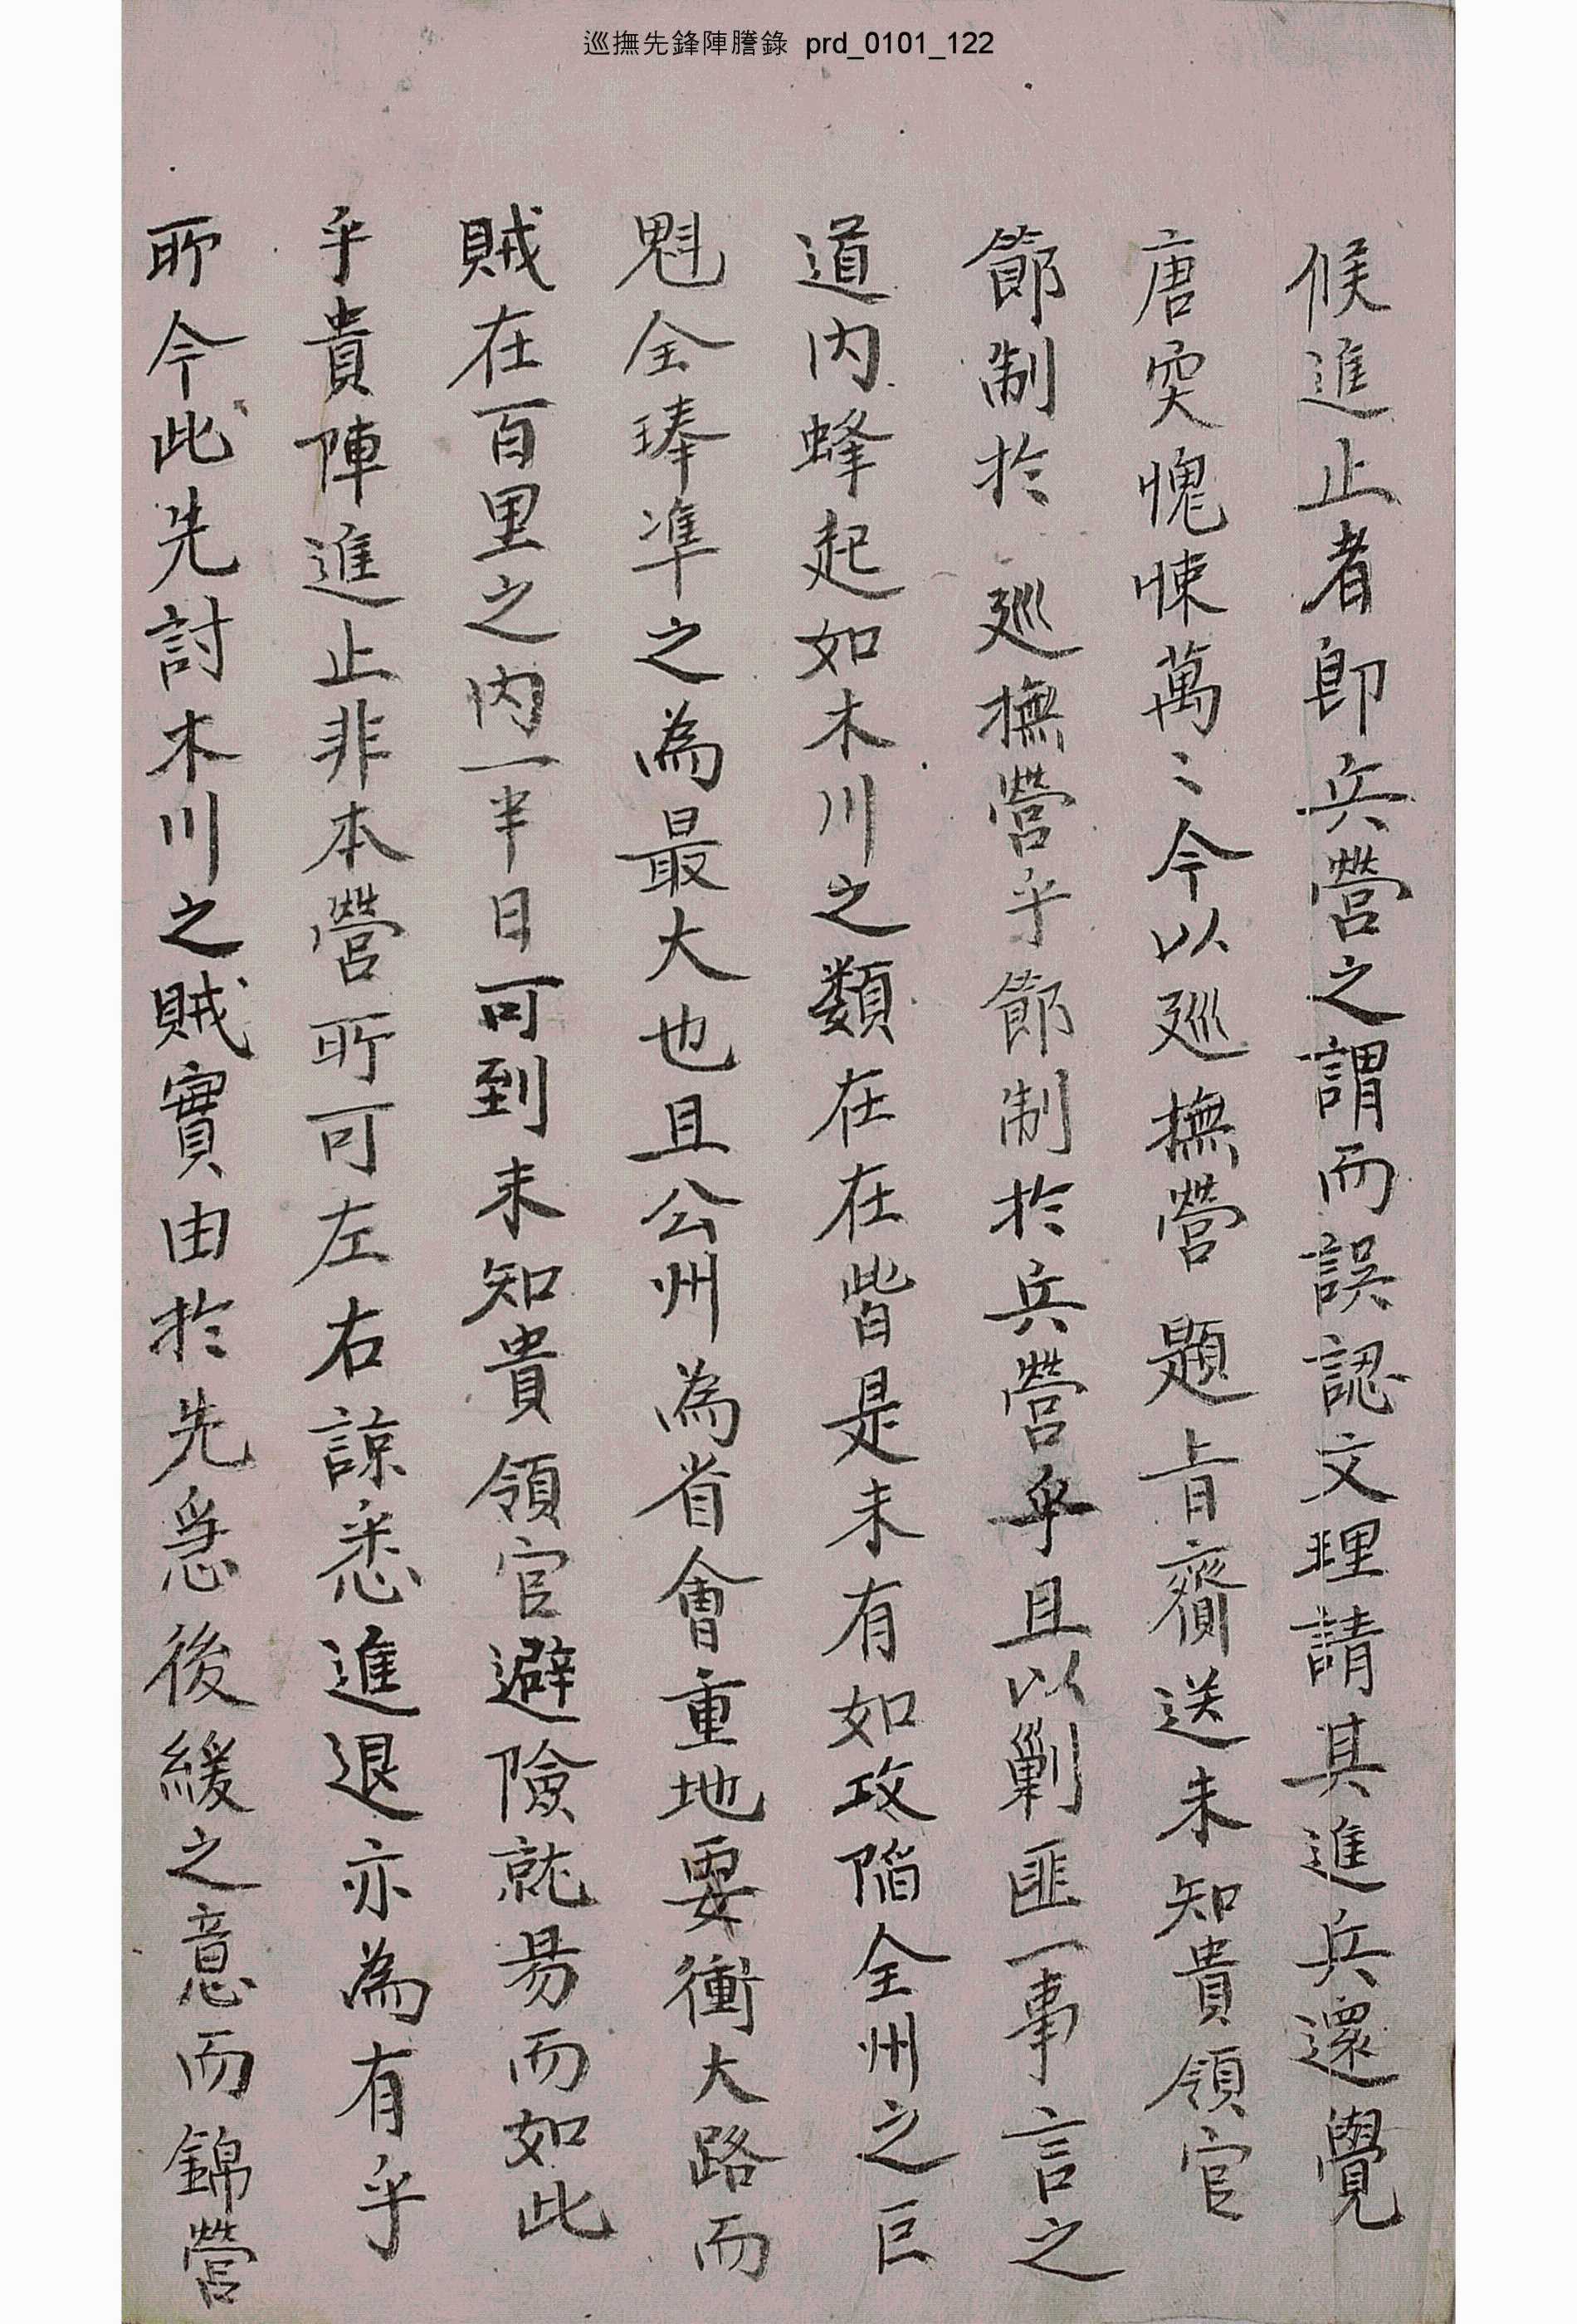 巡撫先鋒陣謄錄 prd_0101_122
候進止者卽兵營之謂而誤認文理請其進兵還覺
唐突愧悚萬〻今以廵撫營 題旨齎送未知貴領官
節制於 廵撫營乎節制於兵營乎且以剿匪一事言之
道内蜂起如木川之類在在皆是未有如攻陷全州之巨
魁全琫準之為最大也且公州為省會重地要衝大路而
賊在百里之内一半日可到未知貴領官避險就易而如此
乎貴陣進止非本營所可左右諒悉進退亦為有乎
所今此先討木川之賊實由於先急後緩之意而錦營